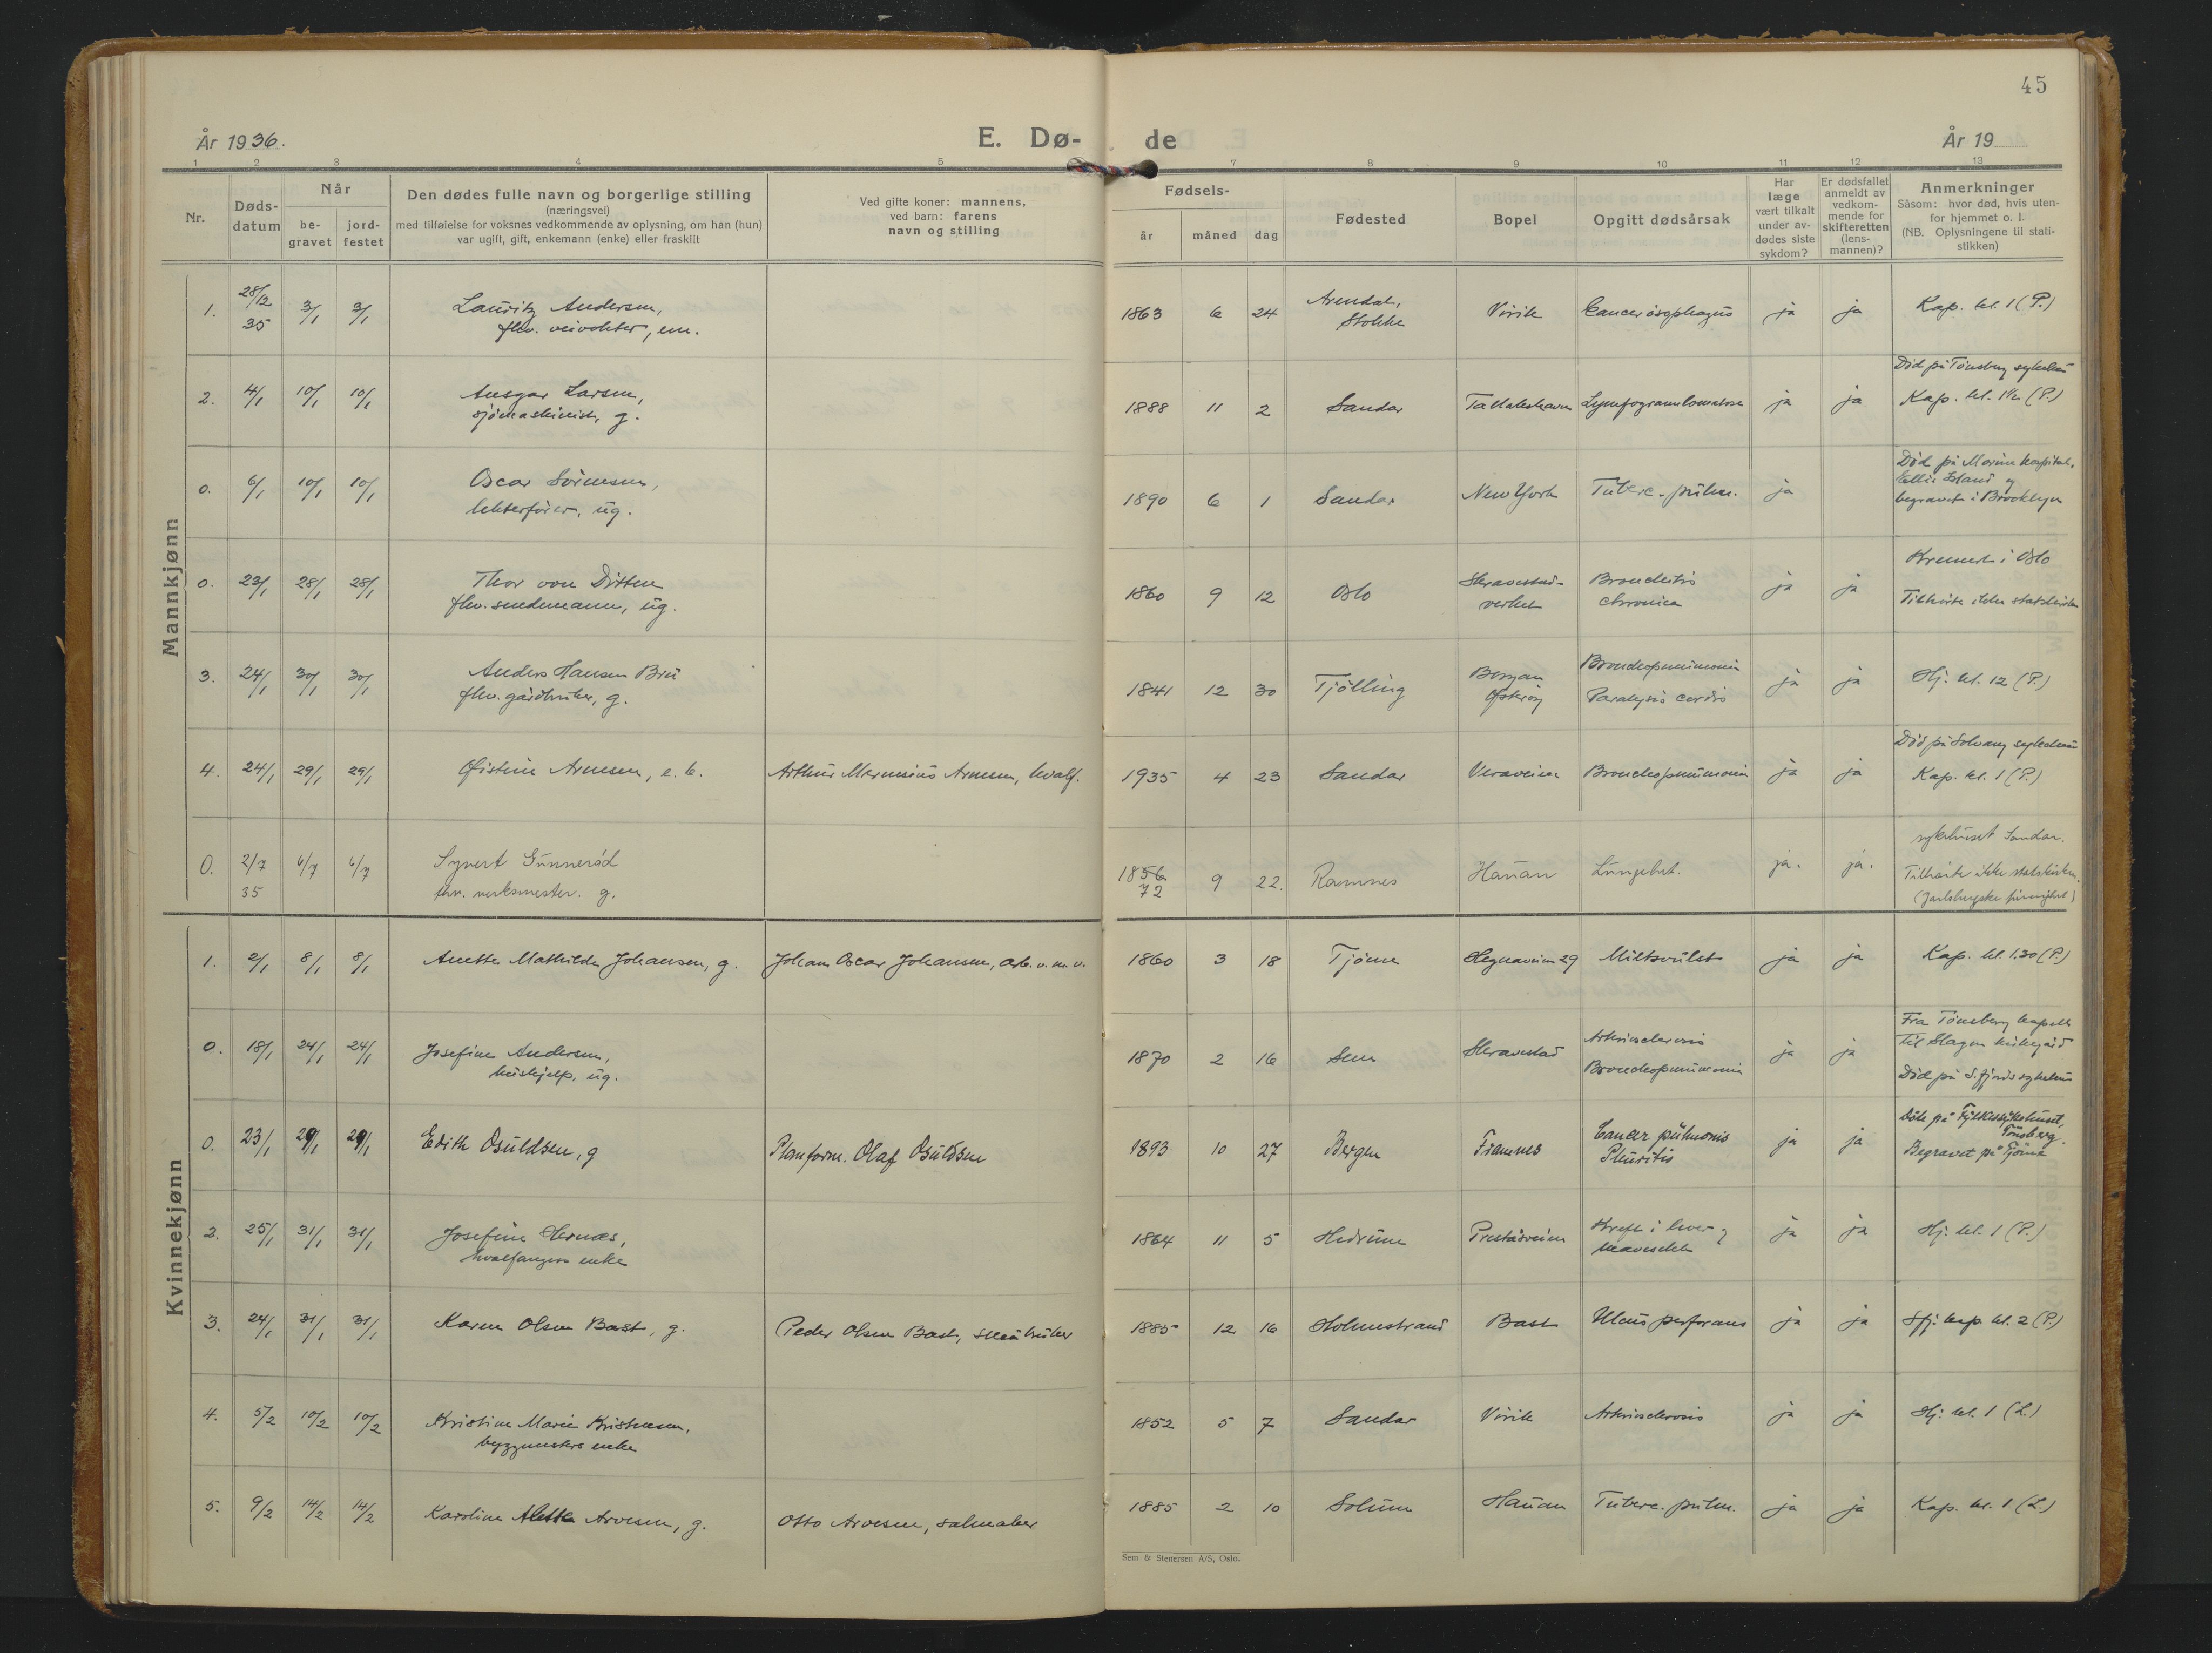 45
År 1936.
E. Dø-
de
År 19
1 2 3 4 5 7 8 9 10 11 12 13
Nr.
Døds-
datum
Når
be-
gravet
jord-
festet
Den dødes fulle navn og borgerlige stilling
(næringsvei)
med tilføielse for voksnes vedkommende av oplysning, om han (hun)
var ugift, gift, enkemann (enke) eller fraskilt
Ved gifte koner: mannens,
ved barn: farens
navn og stilling
Fødsels-
år måned dag
Fødested
Bopel
Opgitt dødsårsak
Har
læge
vært tilkalt
under av-
dødes siste
sykdom?
Er dødsfallet
anmeldt av
vedkom-
mende for
skifteretten
(lens-
mannen)?
Anmerkninger
Såsom: hvor død, hvis uten-
for hjemmet o. l.
(NB. Oplysningene til stati-
stikken)
Mannkjønn
1. 28/12 35 3/1 3/1 Lauritz Andersen,
fhv. veivokter, em.
1863 6 24 Arendal, Stokke Virik Cancer øsophagus ja ja Kap. kl. 1 (P.)
2. 4/1 10/1 10/1 Ansgar Larsen,
sjømaskinist, g.
1888 11 2 Sandar Tallakshavn Lymfogranulomatose ja ja
Død på Tønsberg sykehus
Kap. kl. 1½ (P.)
0. 6/1 10/1 10/1 Oscar Sørensen,
lekterfører, ug.
1890 6 1 Sandar New York Tuberc. pulm. ja
Død på Marine hospital,
Ellis Island og
begravet i Brooklyn
0. 23/1 28/1 28/1 Thor von Ditten
fhv. sendemann, ug.
1860 9 12 Oslo Skravestad-
verket Bronchitis
chronica ja ja
Kremert i Oslo
Tilhørte ikke statskirken
3. 24/1 30/1 30/1 Anders Hansen Bru
fhv. gårdbruker, g.
1841 12 30 Tjølling Bergan
Østerøy Bronchopneumonia
Paralysis cordis ja ja Hj. kl. 12 (P.)
4. 24/1 29/1 29/1 Øistein Arnesen, e. b. Arthur Marensius Arnesen, hvalf.
1935 4 23 Sandar Veraveien Bronchopneumonia ja ja
Død på Solvang sykehus
Kap. kl. 1 (P.)
0. 2/7 35 6/7 6/7 Syvert Gunnerød
fhv. verksmester. g.
1856 72 9 22. Ramnes Hauan Lungebet. ja. ja.
sykehuset Sandar.
Tilhørte ikke statskirken.
(Jarlsbergske frimenighet)
Kvinnekjønn
1. 2/1 8/1 8/1 Anette Mathilde Johansen, g. Johan Oscar Johansen, arb. v. m. v.
1860 3 18 Tjøme Hegnaveien 29 Miltsvulst ja ja Kap. kl. 1.30 (P.)
0. 18/1 24/1 24/1 Josefine Andersen,
hushjelp, ug.
1870 2 16 Sem Skravestad Arteriosclerosis
Bronchopneumonia ja ja
Fra Tønsberg kapell
til Slagen kirkegård
Død på S.fjords sykehus
0. 23/1 29/1 29/1 Edith Osuldsen, g Planform. Olaf Osuldsen
1893 10 27 Bergen Framnes Cancer pulmonis
Pleuritis ja ja
Døde på Fylkessykehuset,
Tønsberg.
Begravet på Tjøme
2. 25/1 31/1 31/1 Josefine Hernæs,
hvalfangers enke
1864 11 5 Hedrum Preståsveien Kreft i lever og
mavesekk ja ja Hj. kl. 1 (P.)
3. 24/1 31/1 31/1 Karen Olsen Bast, g. Peder Olsen Bast, småbruker
1885 12 16 Holmestrand Bast Ulcus perforans ja ja Sfj. kap. kl. 2 (P.)
4. 5/2 10/2 10/2 Kristine Marie Kristensen,
byggmesters enke
1852 5 7 Sandar Virik Arteriosclerosis ja ja Hj. kl. 1 (L.)
5. 9/2 14/2 14/2 Karoline Alette Arvesen, g. Otto Arvesen, salmaker
1885 2 10 Solum Hauan Tuberc. pulm. ja ja Kap. kl. 1 (L.)
Sem & Stenersen A/S, Oslo.